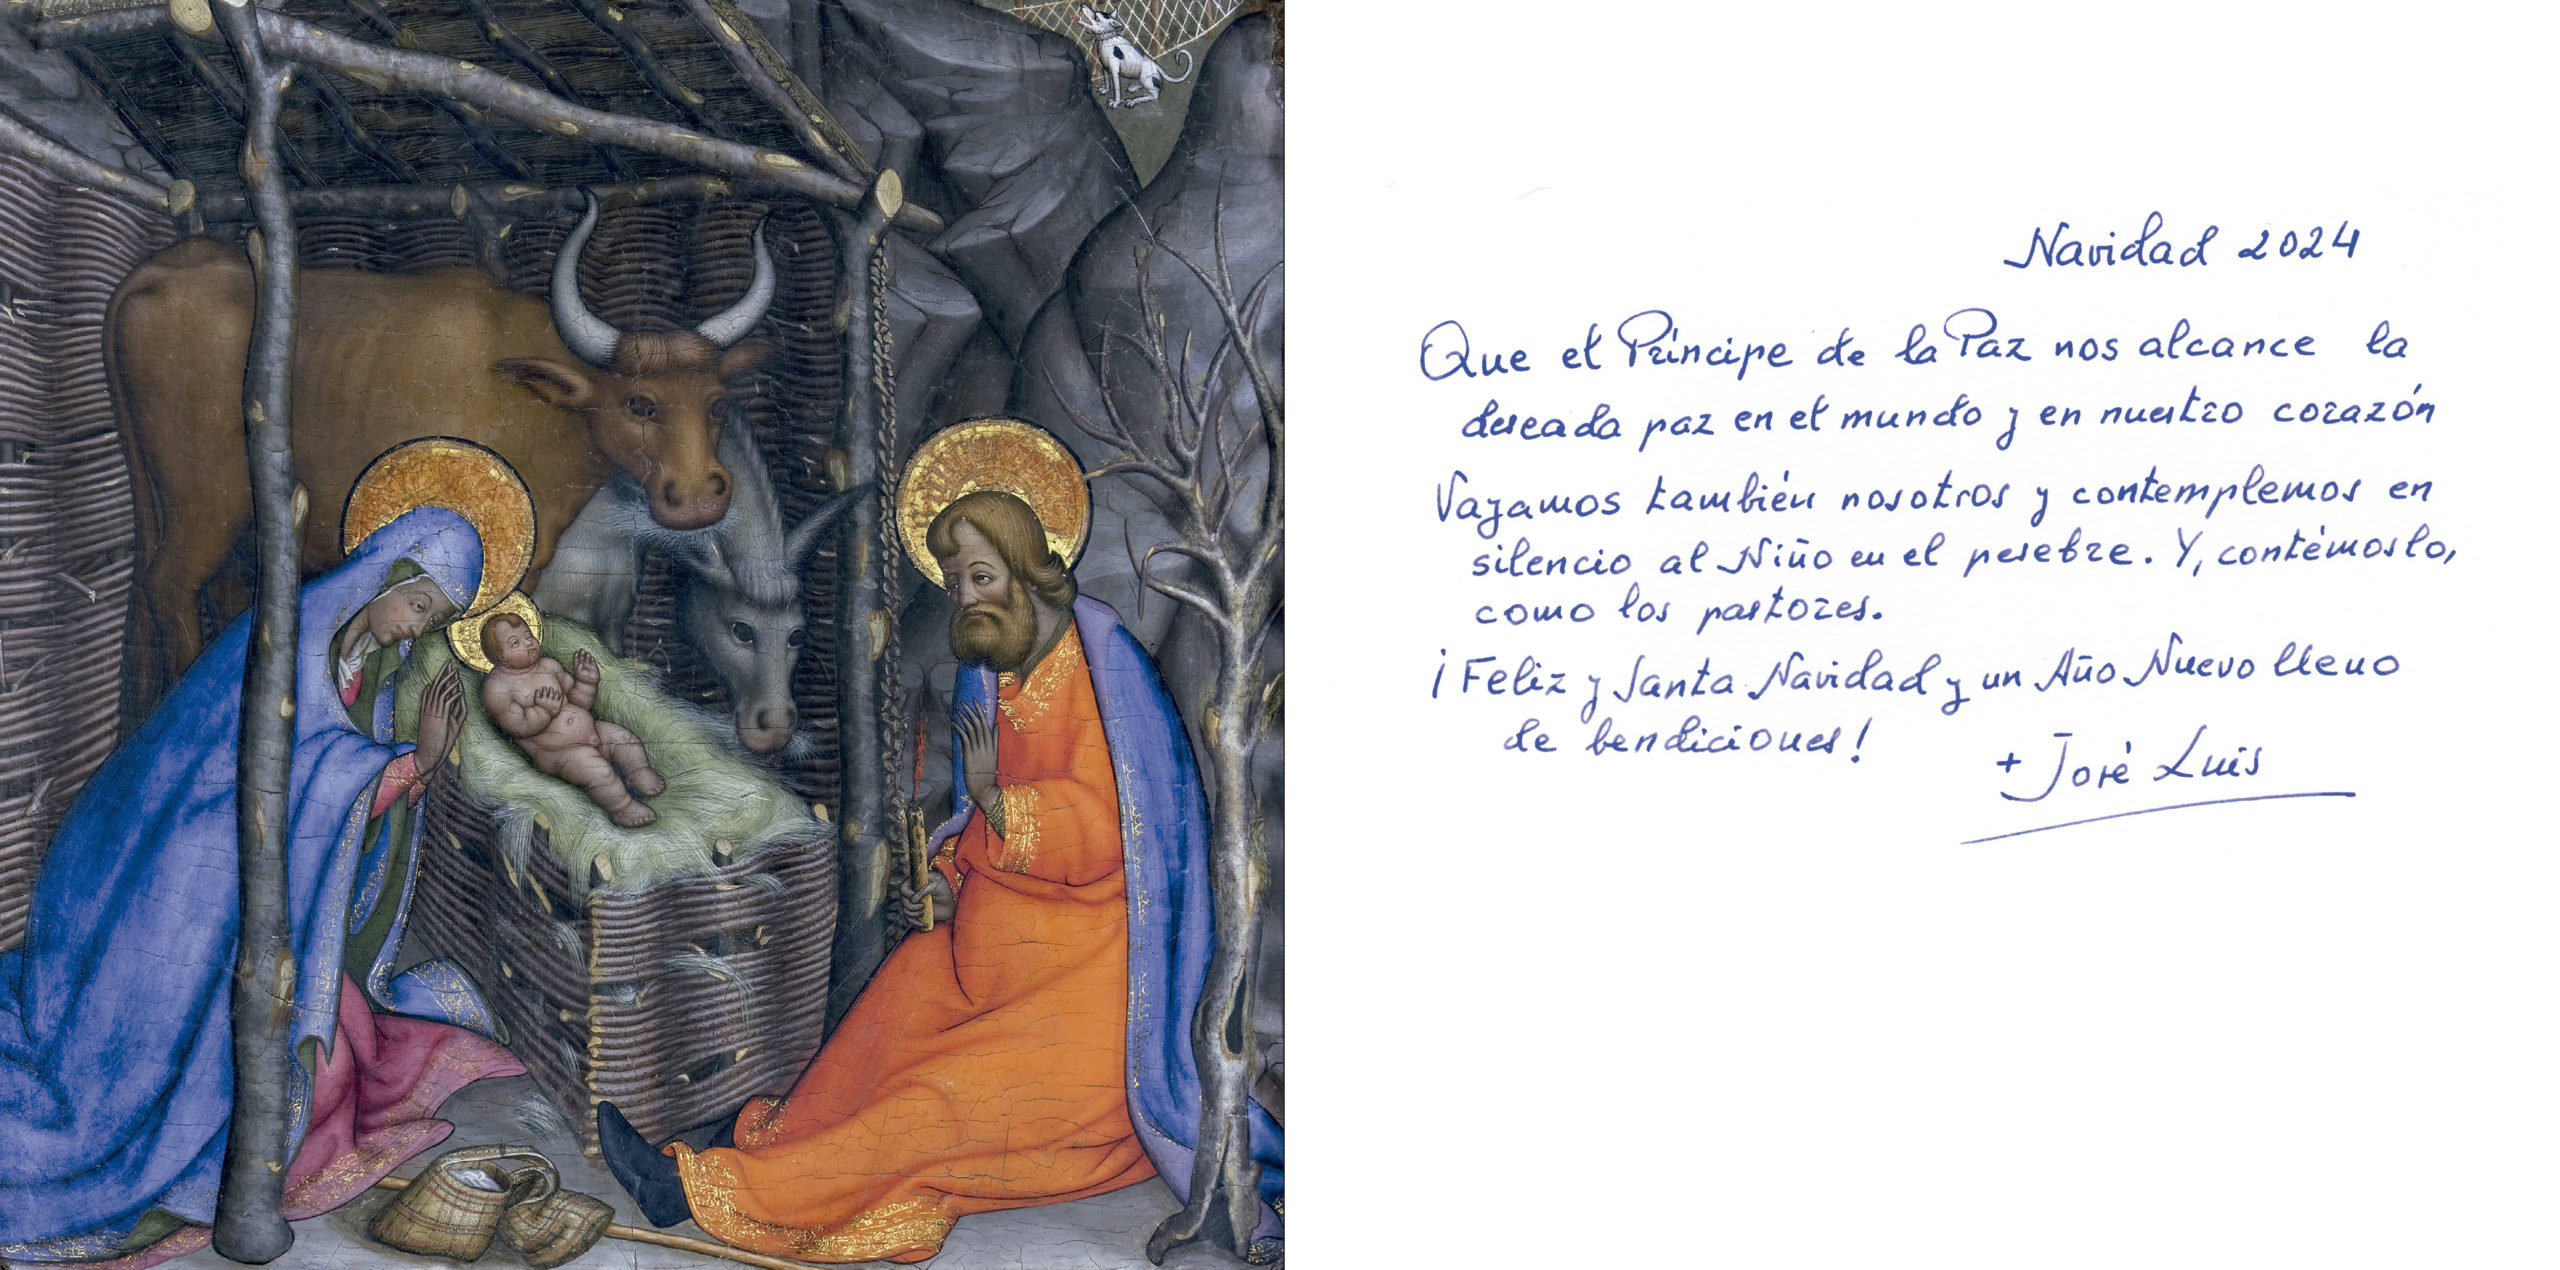 Navidad 2024
Que el Príncipe de la Paz nos alcance la
deseada paz en el mundo y en nuestro corazón
Vayamos también nosotros y contemplemos en
silencio al Niño en el pesebre. Y, contémoslo,
como los pastores.
¡Feliz y Santa Navidad y un Año Nuevo lleno
de bendiciones!
+ José Luis